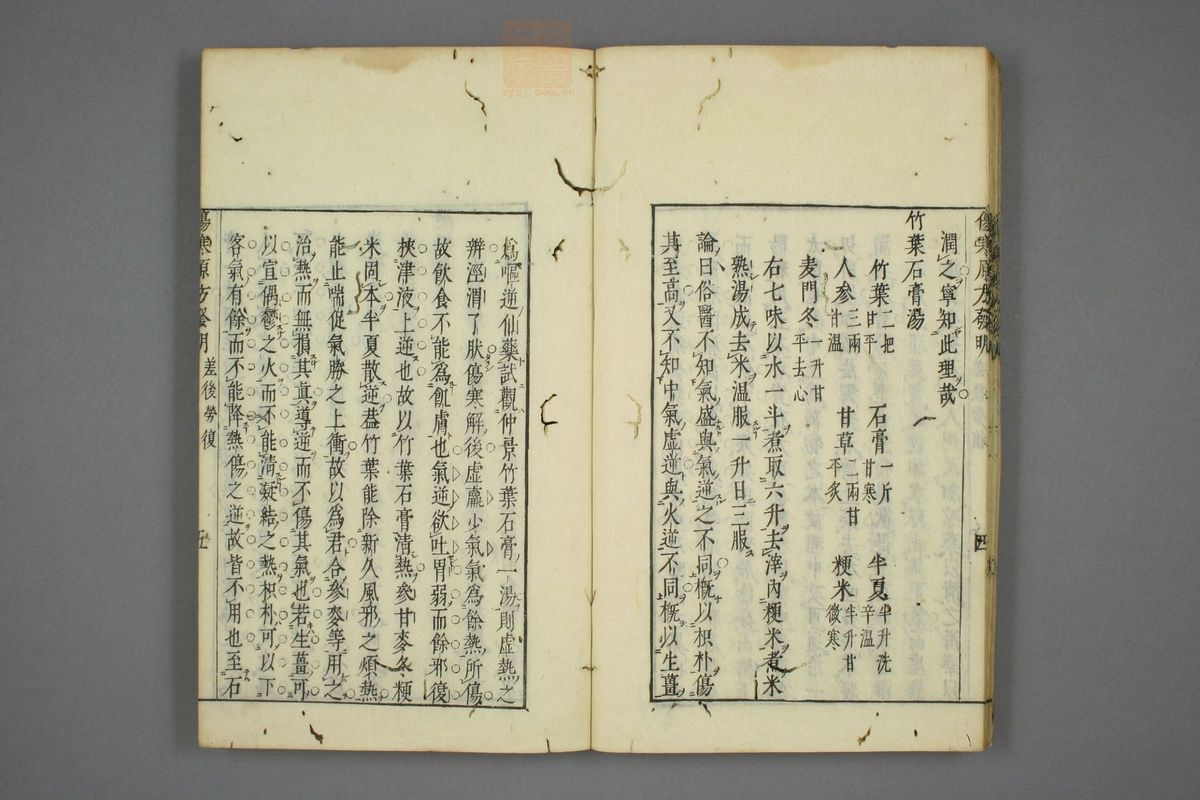 傷寒原方發明
四
潤之寧知此理哉
竹葉石膏湯
竹葉二把甘平 石膏一斤甘寒 半夏半升洗辛溫
人參三兩甘溫 甘草二兩甘平炙 粳米半升甘微寒
麦門冬一升甘平去心
右七味以水一斗煮取六升去滓內粳米煮米
熟湯成去米溫服一升日三服
論曰俗醫不知氣盛與氣逆之不同概以枳朴傷
其至高又不知中氣虛逆與火逆不同概以生薑
爲嘔逆仙藥試觀仲景竹葉石膏一湯則虛熱之
辨涇渭了肰傷寒解後虛羸少氣氣爲餘熱所傷
故飲食不能爲飢膚也氣逆欲吐胃弱而餘邪復
挾津液上逆也故以竹葉石膏清熱參甘麥冬粳
米固本半夏散逆葢竹葉能除新久風邪之煩熱
能止喘促氣勝之上衝故以爲君合參麥等用之
治熱而無損其真導逆而不傷其氣也若生薑可
以宣偶鬱之火而不能清凝結之熱枳朴可以下
客氣有餘而不能降熱傷之逆故皆不用也至石
傷寒原方發明
差後勞復
五